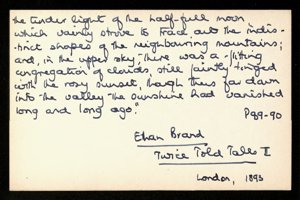 the tender light of the half-full moon,
which vainly strove to trace out the indis-
tinct shapes of the neighbouring mountains;
and, in the upper sky, there was a flitting
congregation of clouds, still faintly tinged
with the rosy sunset, though thus far down
into the valley the sunshine had vanished
long and long ago".
P89-90
Ethan Brand
Twice Told Tales II
London, 1893